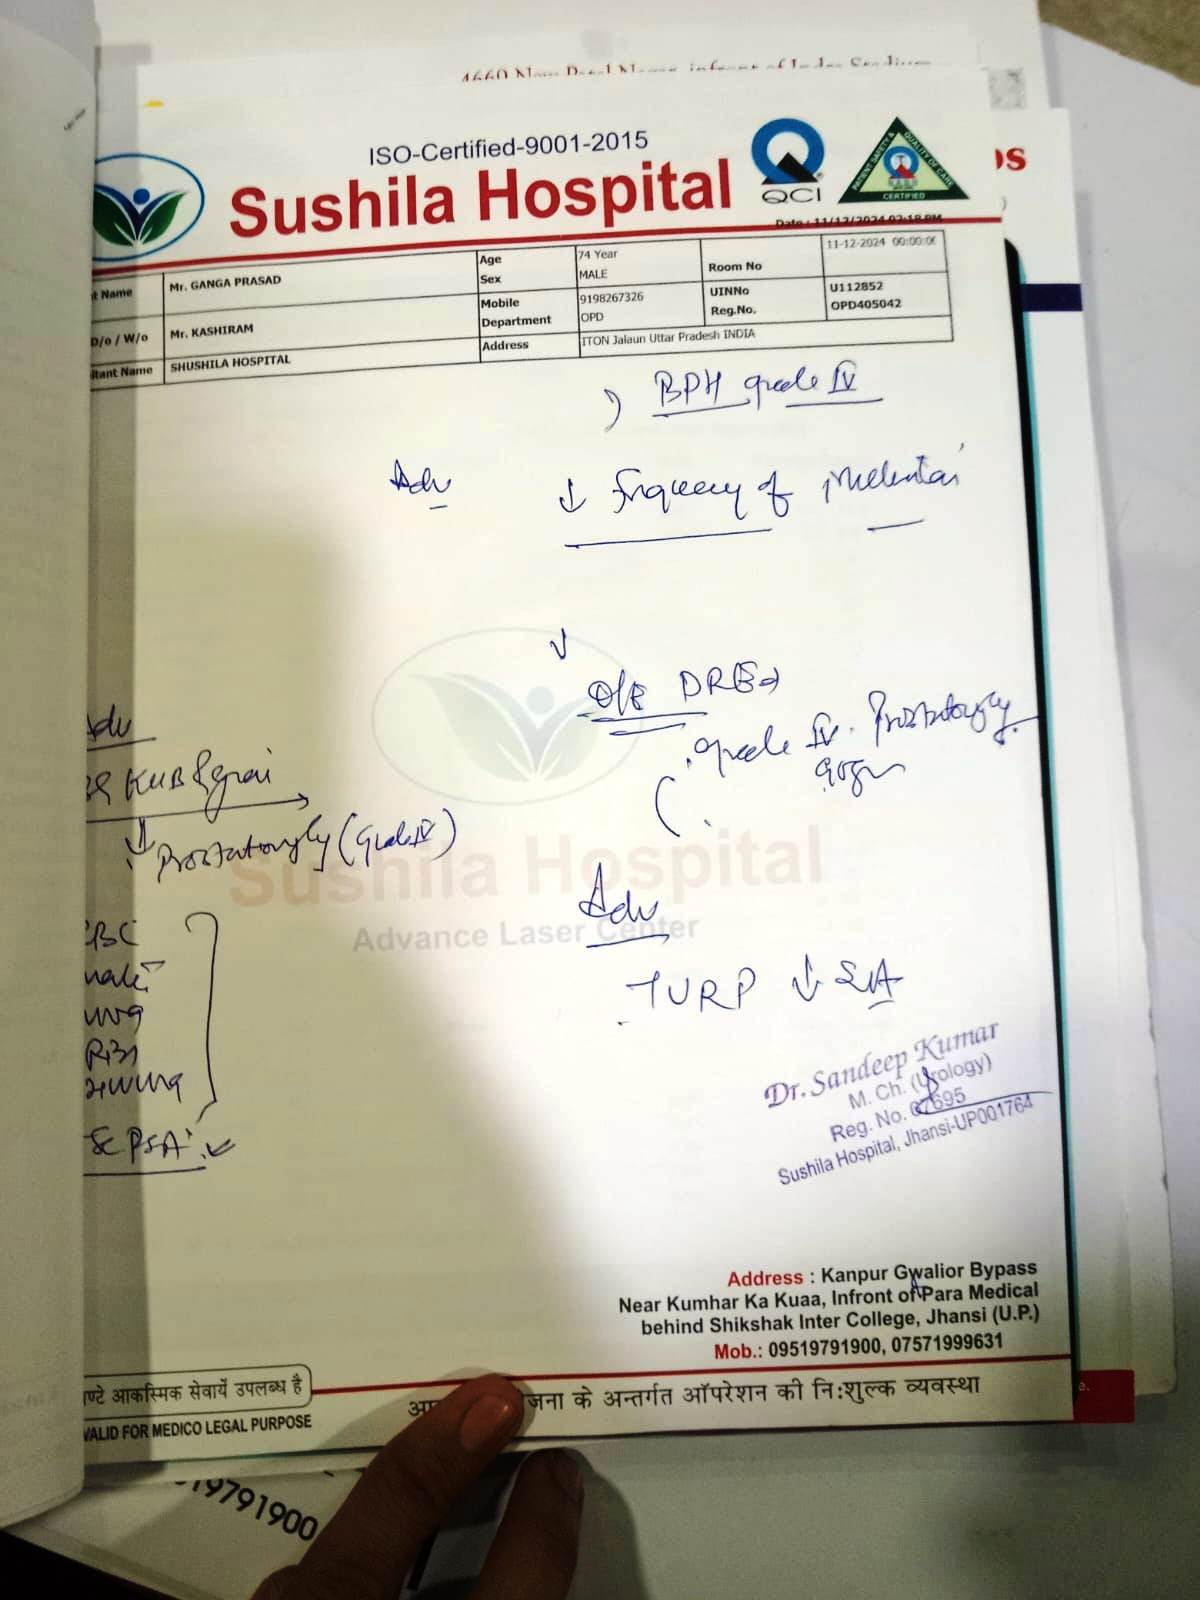 ISO-Certified-9001-2015
Sushila Hospital
QCI
PATIENT SAFETY & QUALITY OF CARE
CERTIFIED
Date : 11/12/2024 02:18 PM
t Name Mr. GANGA PRASAD Age 74 Year Room No 11-12-2024 00:00:0
Sex MALE
D/o / W/o Mr. KASHIRAM Mobile 9198267326 UINNo U112852
Department OPD Reg.No. OPD405042
ltant Name SHUSHILA HOSPITAL Address ITON Jalaun Uttar Pradesh INDIA
BPH grade IV
Adv ↓ Frequency of
↓
O/E DRE→
grade IV. Prostatomegaly
Adv
KUB
↓ Prostatomegaly (Grade IV)
CBC
S. PSA
Adv
TURP ↓ S/A
Sushila Hospital
Advance Laser Center
Dr. Sandeep Kumar
M. Ch. (Urology)
Reg. No. 67695
Sushila Hospital, Jhansi-UP001764
Address : Kanpur Gwalior Bypass
Near Kumhar Ka Kuaa, Infront of Para Medical
behind Shikshak Inter College, Jhansi (U.P.)
Mob.: 09519791900, 07571999631
ण्टे आकस्मिक सेवायें उपलब्ध है
जना के अन्तर्गत ऑपरेशन की नि:शुल्क व्यवस्था
VALID FOR MEDICO LEGAL PURPOSE
19791900